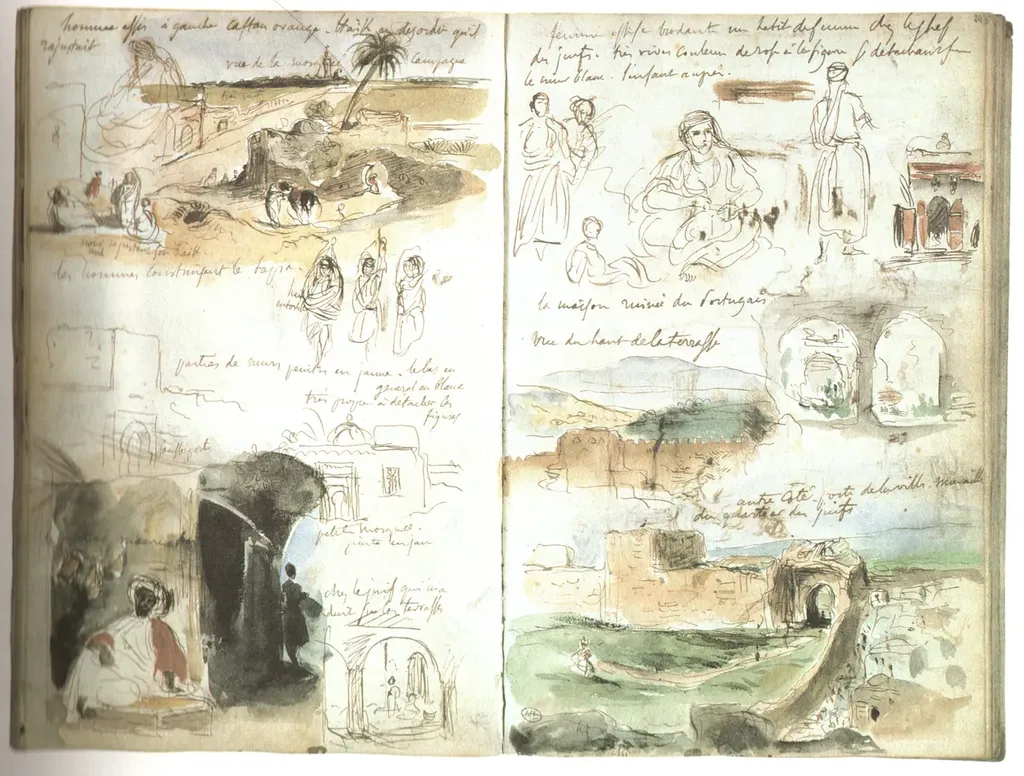 hommes assis à gauche caftan orange. Haïk en desordre qu'il
rajustait
vue de la mosquée campagne
noir rajustant son haïk
les hommes construisant le
parties de murs peintes en jaune. le bas en
general en blanc
très propre à detacher les
figures
petite mosquée.
chez le juif qui m'a
les terrasses
femme assise brodant un habit de femme chez le chef
des juifs. très vives couleurs de rose à la figure se detachant sur
le mur blanc. l'enfant auprès.
la maison ruinée du Portugais
vue du haut de la terrasse
autre coté. porte de la ville. muraille
du quartier des juifs